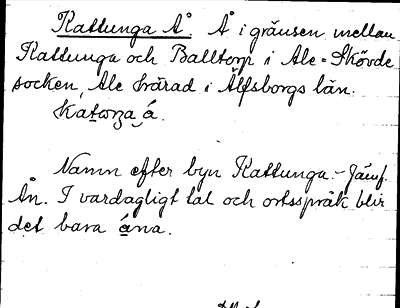 Kattunga Å. Å i gränsen mellan
Kattunga och Balltorp i Ale-Skövde
socken, Ale härad i Älfsborgs län.
Namn efter byn Kattunga. - Jämf.
Ån. I vardagligt tal och ortsspråk blir
det bara ána.